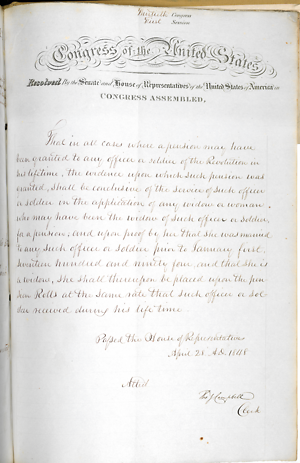 Thirtieth Congress
First Session
Congress of the United States,
Resolved By the Senate and House of Representatives of the United States of America in
CONGRESS ASSEMBLED,
That in all cases where a pension may have
been granted to any officer or soldier of the Revolution in
his lifetime, the evidence upon which such pension was
granted, shall be conclusive of the service of such officer
or soldier in the application of any widow or woman
who may have been the widow of such officer or soldier,
for a pension, and upon proof by her that she was married
to any such officer or soldier prior to January first,
seventeen hundred and ninety four, and that she is
a widow, she shall thereupon be placed upon the pen-
sion Rolls at the same rate that such officer or sol-
dier received during his life time.
Passed the House of Representatives
April 28 A.D. 1848
Attest
Th J Campbell
Clerk